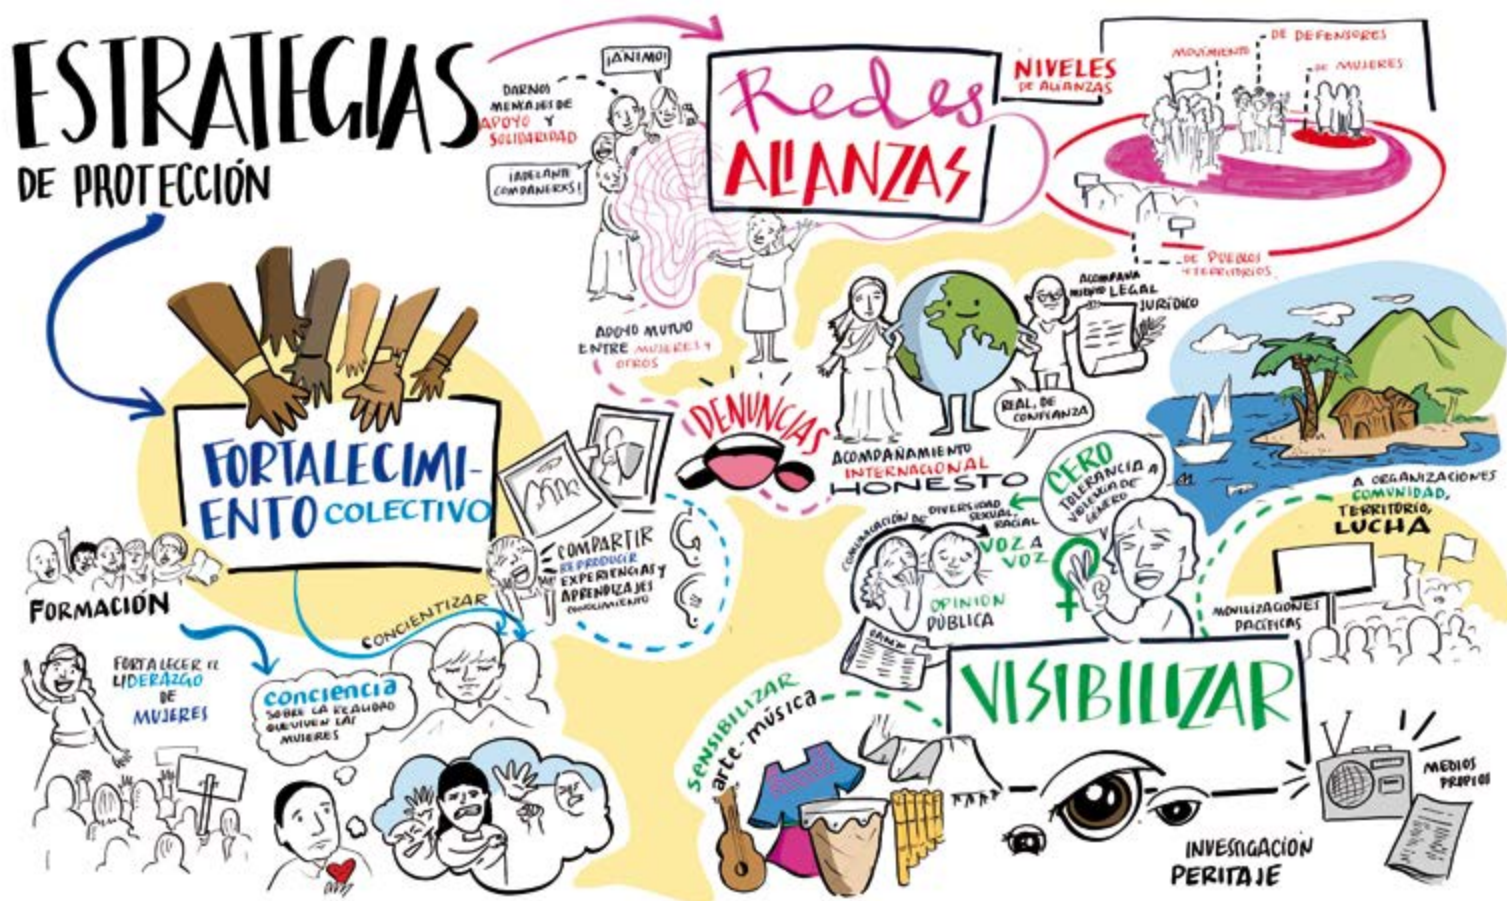 ESTRATEGIAS
DE PROTECCIÓN
DARNOS
MENSAJES DE
APOYO Y
SOLIDARIDAD
¡ÁNIMO!
¡ADELANTE
COMPAÑERXS!
Redes
ALIANZAS
NIVELES
DE ALIANZAS
MOVIMIENTO
DE DEFENSORES
DE MUJERES
DE PUEBLOS
Y TERRITORIOS
APOYO MUTUO
ENTRE MUJERES Y
OTROS
DENUNCIAS
ACOMPAÑA
MIENTO LEGAL
JURÍDICO
REAL, DE
CONFIANZA
ACOMPAÑAMIENTO
INTERNACIONAL
HONESTO
FORTALECIMI-
ENTO COLECTIVO
FORMACIÓN
COMPARTIR
REPRODUCIR
EXPERIENCIAS Y
APRENDIZAJES
CONOCIMIENTO
CONCIENTIZAR
FORTALECER EL
LIDERAZGO
DE
MUJERES
conciencia
SOBRE LA REALIDAD
QUE VIVEN LAS
MUJERES
CERO
TOLERANCIA A
VIOLENCIA DE
GÉNERO
COMUNICACIÓN DE
DIVERSIDAD
SEXUAL,
RACIAL
VOZ A
VOZ
OPINION
PÚBLICA
A ORGANIZACIONES
COMUNIDAD,
TERRITORIO,
LUCHA
MOVILIZACIONES
PACÍFICAS
VISIBILIZAR
SENSIBILIZAR
arte-música
MEDIOS
PROPIOS
INVESTIGACIÓN
PERITAJE